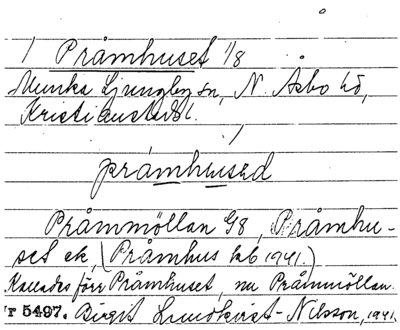 1 Pråmhuset 1/8
Munka Ljungby sn, N. Åsbo hd,
Kristianstads l.
pråmhused
Pråmmöllan G8, Pråmhu-
set ek (Pråmhus kb 1941.)
Kallades förr Pråmhuset, nu Pråmmöllan.
r 5497. Birgit Lundkvist-Nilsson, 1941.